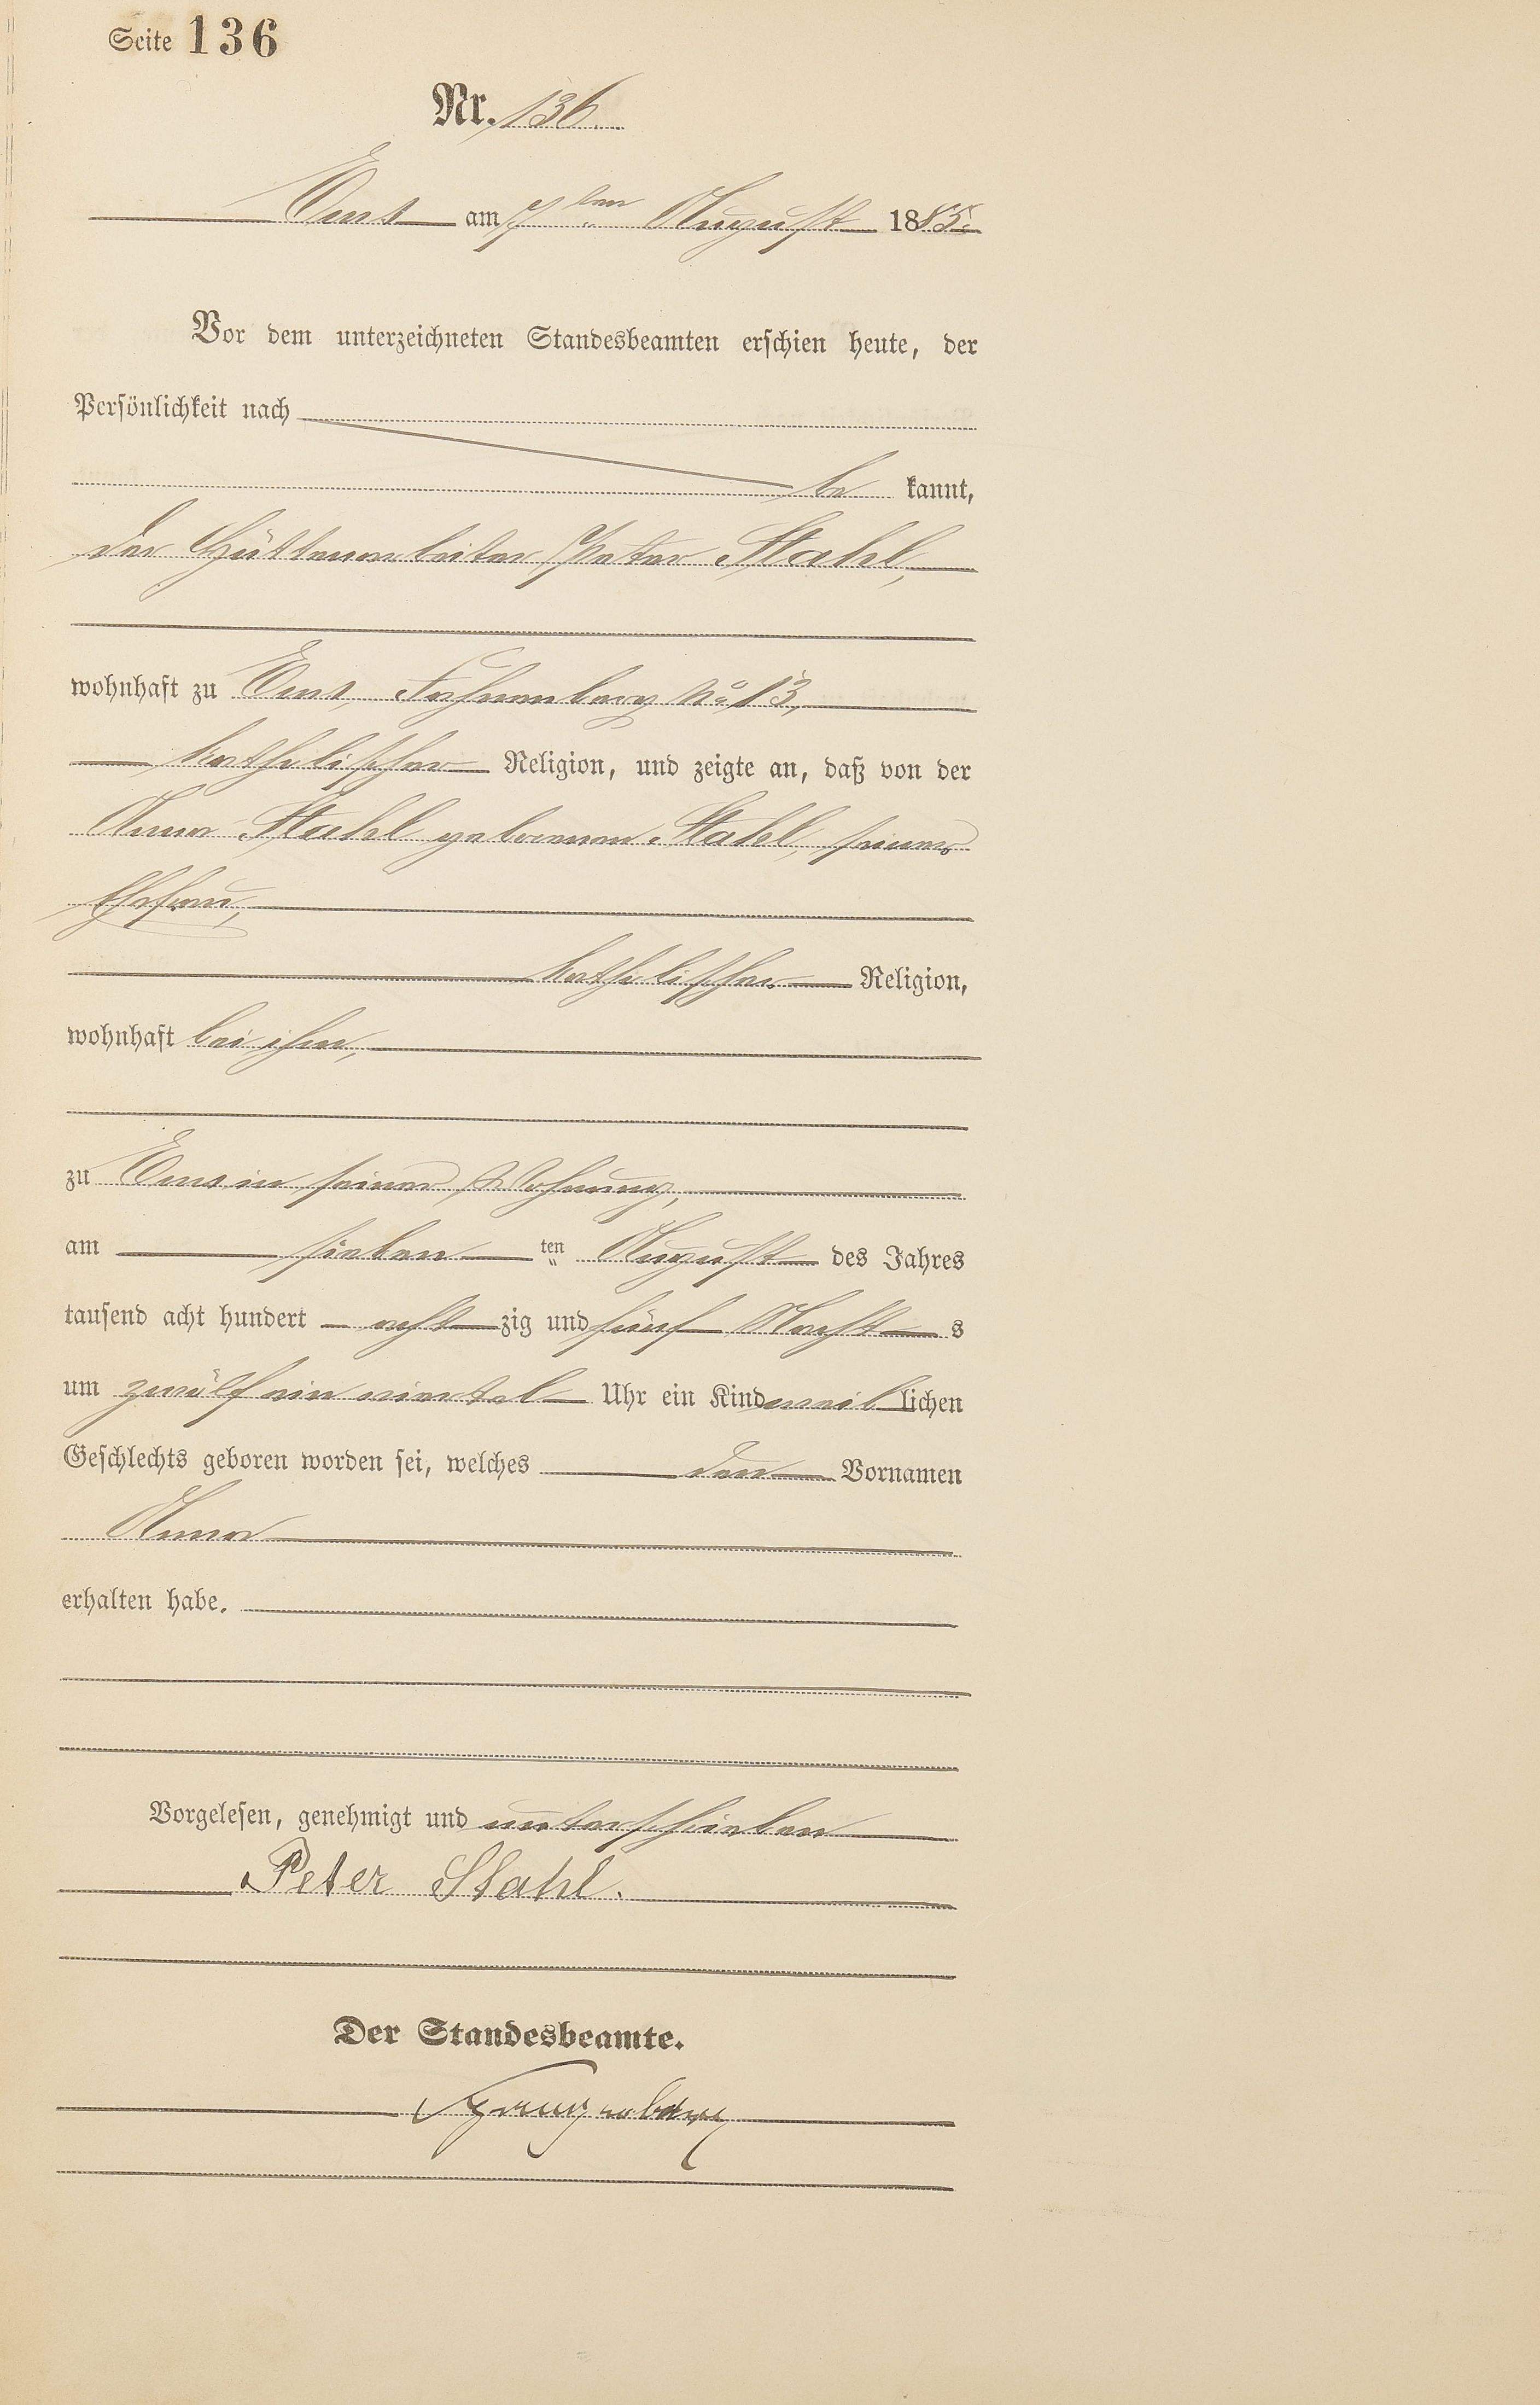 Seite 136
Nr. 136.
Ems am 7ten August 1885.
Vor dem unterzeichneten Standesbeamten erschien heute, der
Persönlichkeit nach
be kannt,
der Hüttenarbeiter Peter Stahl,
wohnhaft zu Ems, Fahnenberg No 13,
katholischer Religion, und zeigte an, daß von der
Anna Stahl geborenen Stahl, seiner
Ehefrau,
katholischer Religion,
wohnhaft bei ihm,
zu Ems in seiner Wohnung,
am sieben ten August des Jahres
tausend acht hundert acht zig und fünf Nacht s
um zwölf ein viertel Uhr ein Kind weib lichen
Geschlechts geboren worden sei, welches den Vornamen
Anna
erhalten habe.
Vorgelesen, genehmigt und unterschrieben
Peter Stahl.
Der Standesbeamte.